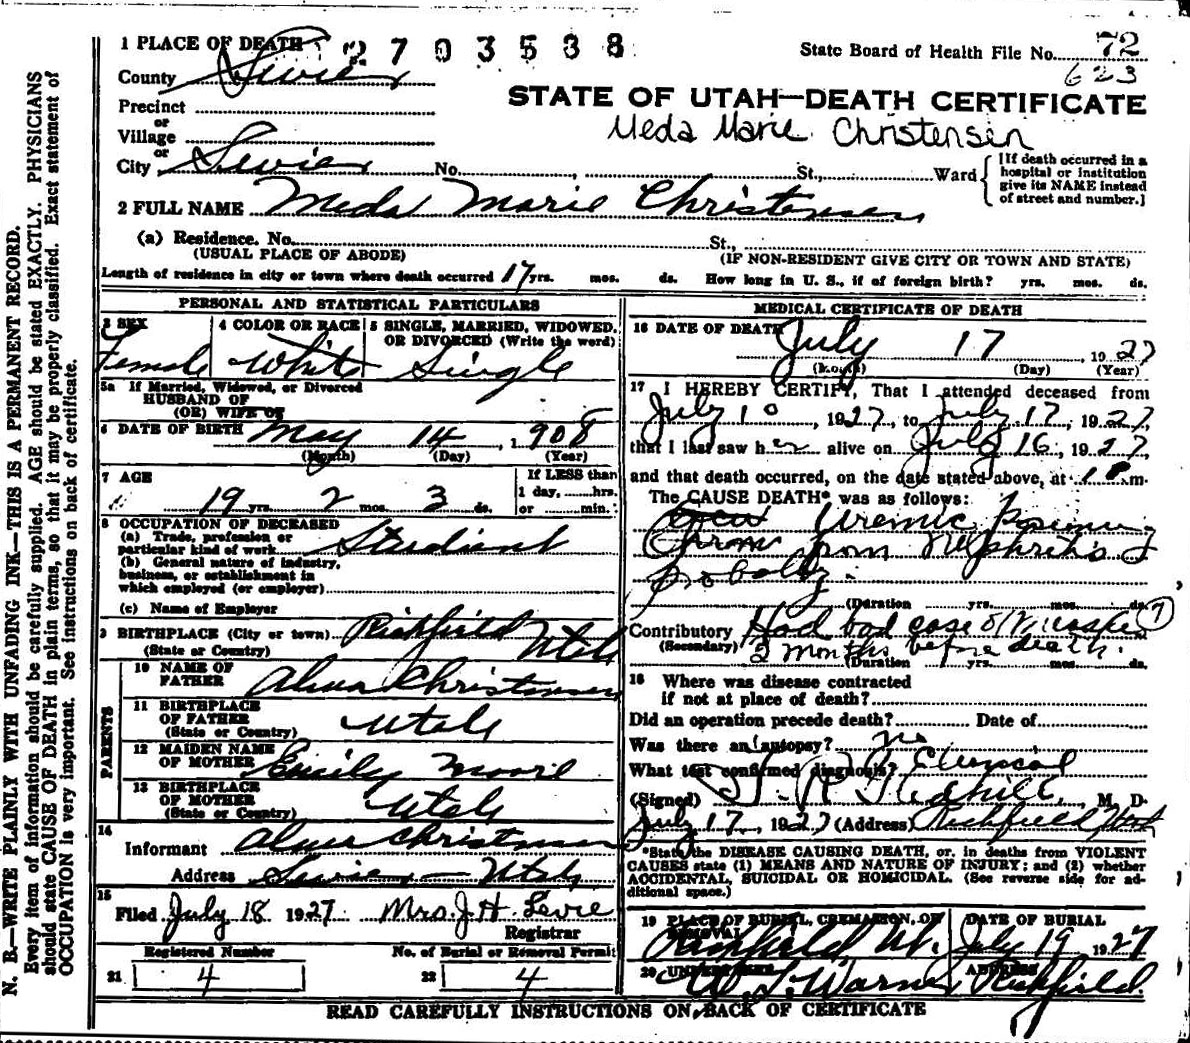 1 PLACE OF DEATH 2703538 State Board of Health File No. 72
County Sevier 623
Precinct
STATE OF UTAH—DEATH CERTIFICATE
or
Village
Meda Marie Christensen
or
City Sevier No. , St., Ward { [If death occurred in a hospital or institution give its NAME instead of street and number.]
2 FULL NAME Meda Marie Christensen
(a) Residence. No. St.,
(USUAL PLACE OF ABODE) (IF NON-RESIDENT GIVE CITY OR TOWN AND STATE)
Length of residence in city or town where death occurred 17 yrs. mos. ds. How long in U. S., if of foreign birth? yrs. mos. ds.
PERSONAL AND STATISTICAL PARTICULARS
3 SEX 4 COLOR OR RACE 5 SINGLE, MARRIED, WIDOWED, OR DIVORCED (Write the word)
Female White Single
5a If Married, Widowed, or Divorced
HUSBAND OF
(OR) WIFE OF
6 DATE OF BIRTH May 14, 1908
(Month) (Day) (Year)
7 AGE If LESS than
19 yrs. 2 mos. 3 ds. 1 day, hrs.
or min.
8 OCCUPATION OF DECEASED
(a) Trade, profession or
particular kind of work Student
(b) General nature of industry,
business, or establishment in
which employed (or employer)
(c) Name of Employer
9 BIRTHPLACE (City or town) Richfield Utah
(State or Country)
PARENTS
10 NAME OF
FATHER Alma Christensen
11 BIRTHPLACE
OF FATHER Utah
(State or Country)
12 MAIDEN NAME
OF MOTHER Emily Moore
13 BIRTHPLACE
OF MOTHER Utah
(State or Country)
14
Informant Alma Christensen
Address Sevier - Utah
15
Filed July 18 1927 Mrs. J. H. Levie
Registrar
Registered Number No. of Burial or Removal Permit
21 4 22 4
MEDICAL CERTIFICATE OF DEATH
16 DATE OF DEATH July 17, 1927
(Month) (Day) (Year)
17 I HEREBY CERTIFY, That I attended deceased from
July 10, 1927, to July 17, 1927,
that I last saw her alive on July 16, 1927,
and that death occurred, on the date stated above, at m.
The CAUSE DEATH* was as follows:
Uremic
from Nephritis
probably.
(Duration yrs. mos. ds.
Contributory Had bad case of 7
(Secondary) 2 months before death.
(Duration yrs. mos. ds.
18 Where was disease contracted
if not at place of death?
Did an operation precede death? Date of
Was there an autopsy? no
What test confirmed diagnosis? Clinical
(Signed) M. D.
July 17, 1927 (Address) Richfield Utah
*State the DISEASE CAUSING DEATH, or, in deaths from VIOLENT
CAUSES state (1) MEANS AND NATURE OF INJURY; and (2) whether
ACCIDENTAL, SUICIDAL OR HOMICIDAL. (See reverse side for ad-
ditional space.)
19 PLACE OF BURIAL, CREMATION, OR REMOVAL DATE OF BURIAL
Richfield Ut. July 19 1927
20 UNDERTAKER ADDRESS
Warner Richfield
READ CAREFULLY INSTRUCTIONS ON BACK OF CERTIFICATE
N. B.—WRITE PLAINLY WITH UNFADING INK—THIS IS A PERMANENT RECORD.
Every item of information should be carefully supplied. AGE should be stated EXACTLY. PHYSICIANS
should state CAUSE OF DEATH in plain terms, so that it may be properly classified. Exact statement of
OCCUPATION is very important. See instructions on back of certificate.